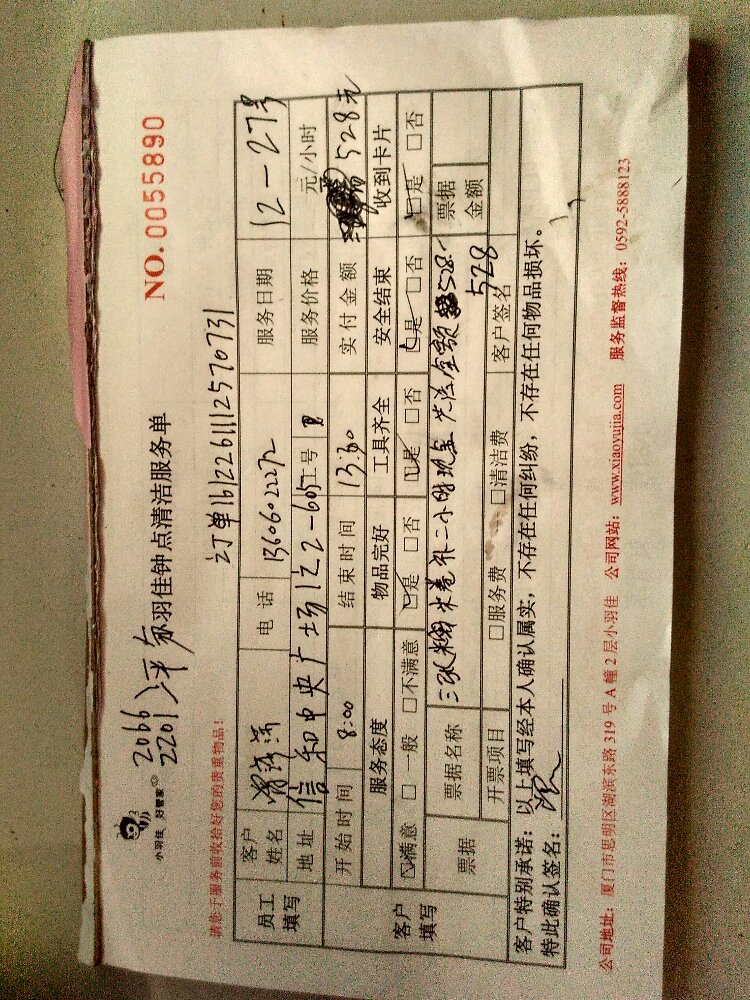 小羽佳 好管家
NO.0055890
2066
2201
小羽佳钟点清洁服务单
订单1612261112570731
请您于服务前收拾好您的贵重物品!
员工填写
客户姓名
电话 13606022272
服务日期 12-27号
地址 信和中央广场12 2-605
工号
服务价格 元/小时
开始时间 8:00
结束时间 13:30
实付金额 528元
客户填写
服务态度 物品完好 工具齐全 安全结束 收到卡片
☑满意 □一般 □不满意 ☑是 □否 ☑是 □否 ☑是 □否 ☑是 □否
票据 票据名称 三张 卷 二小时现金 528.- 票据金额
528
开票项目 □服务费 □清洁费 客户签名
客户特别承诺:以上填写经本人确认属实,不存在任何纠纷,不存在任何物品损坏。
特此确认签名:
公司地址:厦门市思明区湖滨东路 319 号 A 幢 2 层小羽佳 公司网站:www.xiaoyujia.com 服务监督热线:0592-5888123